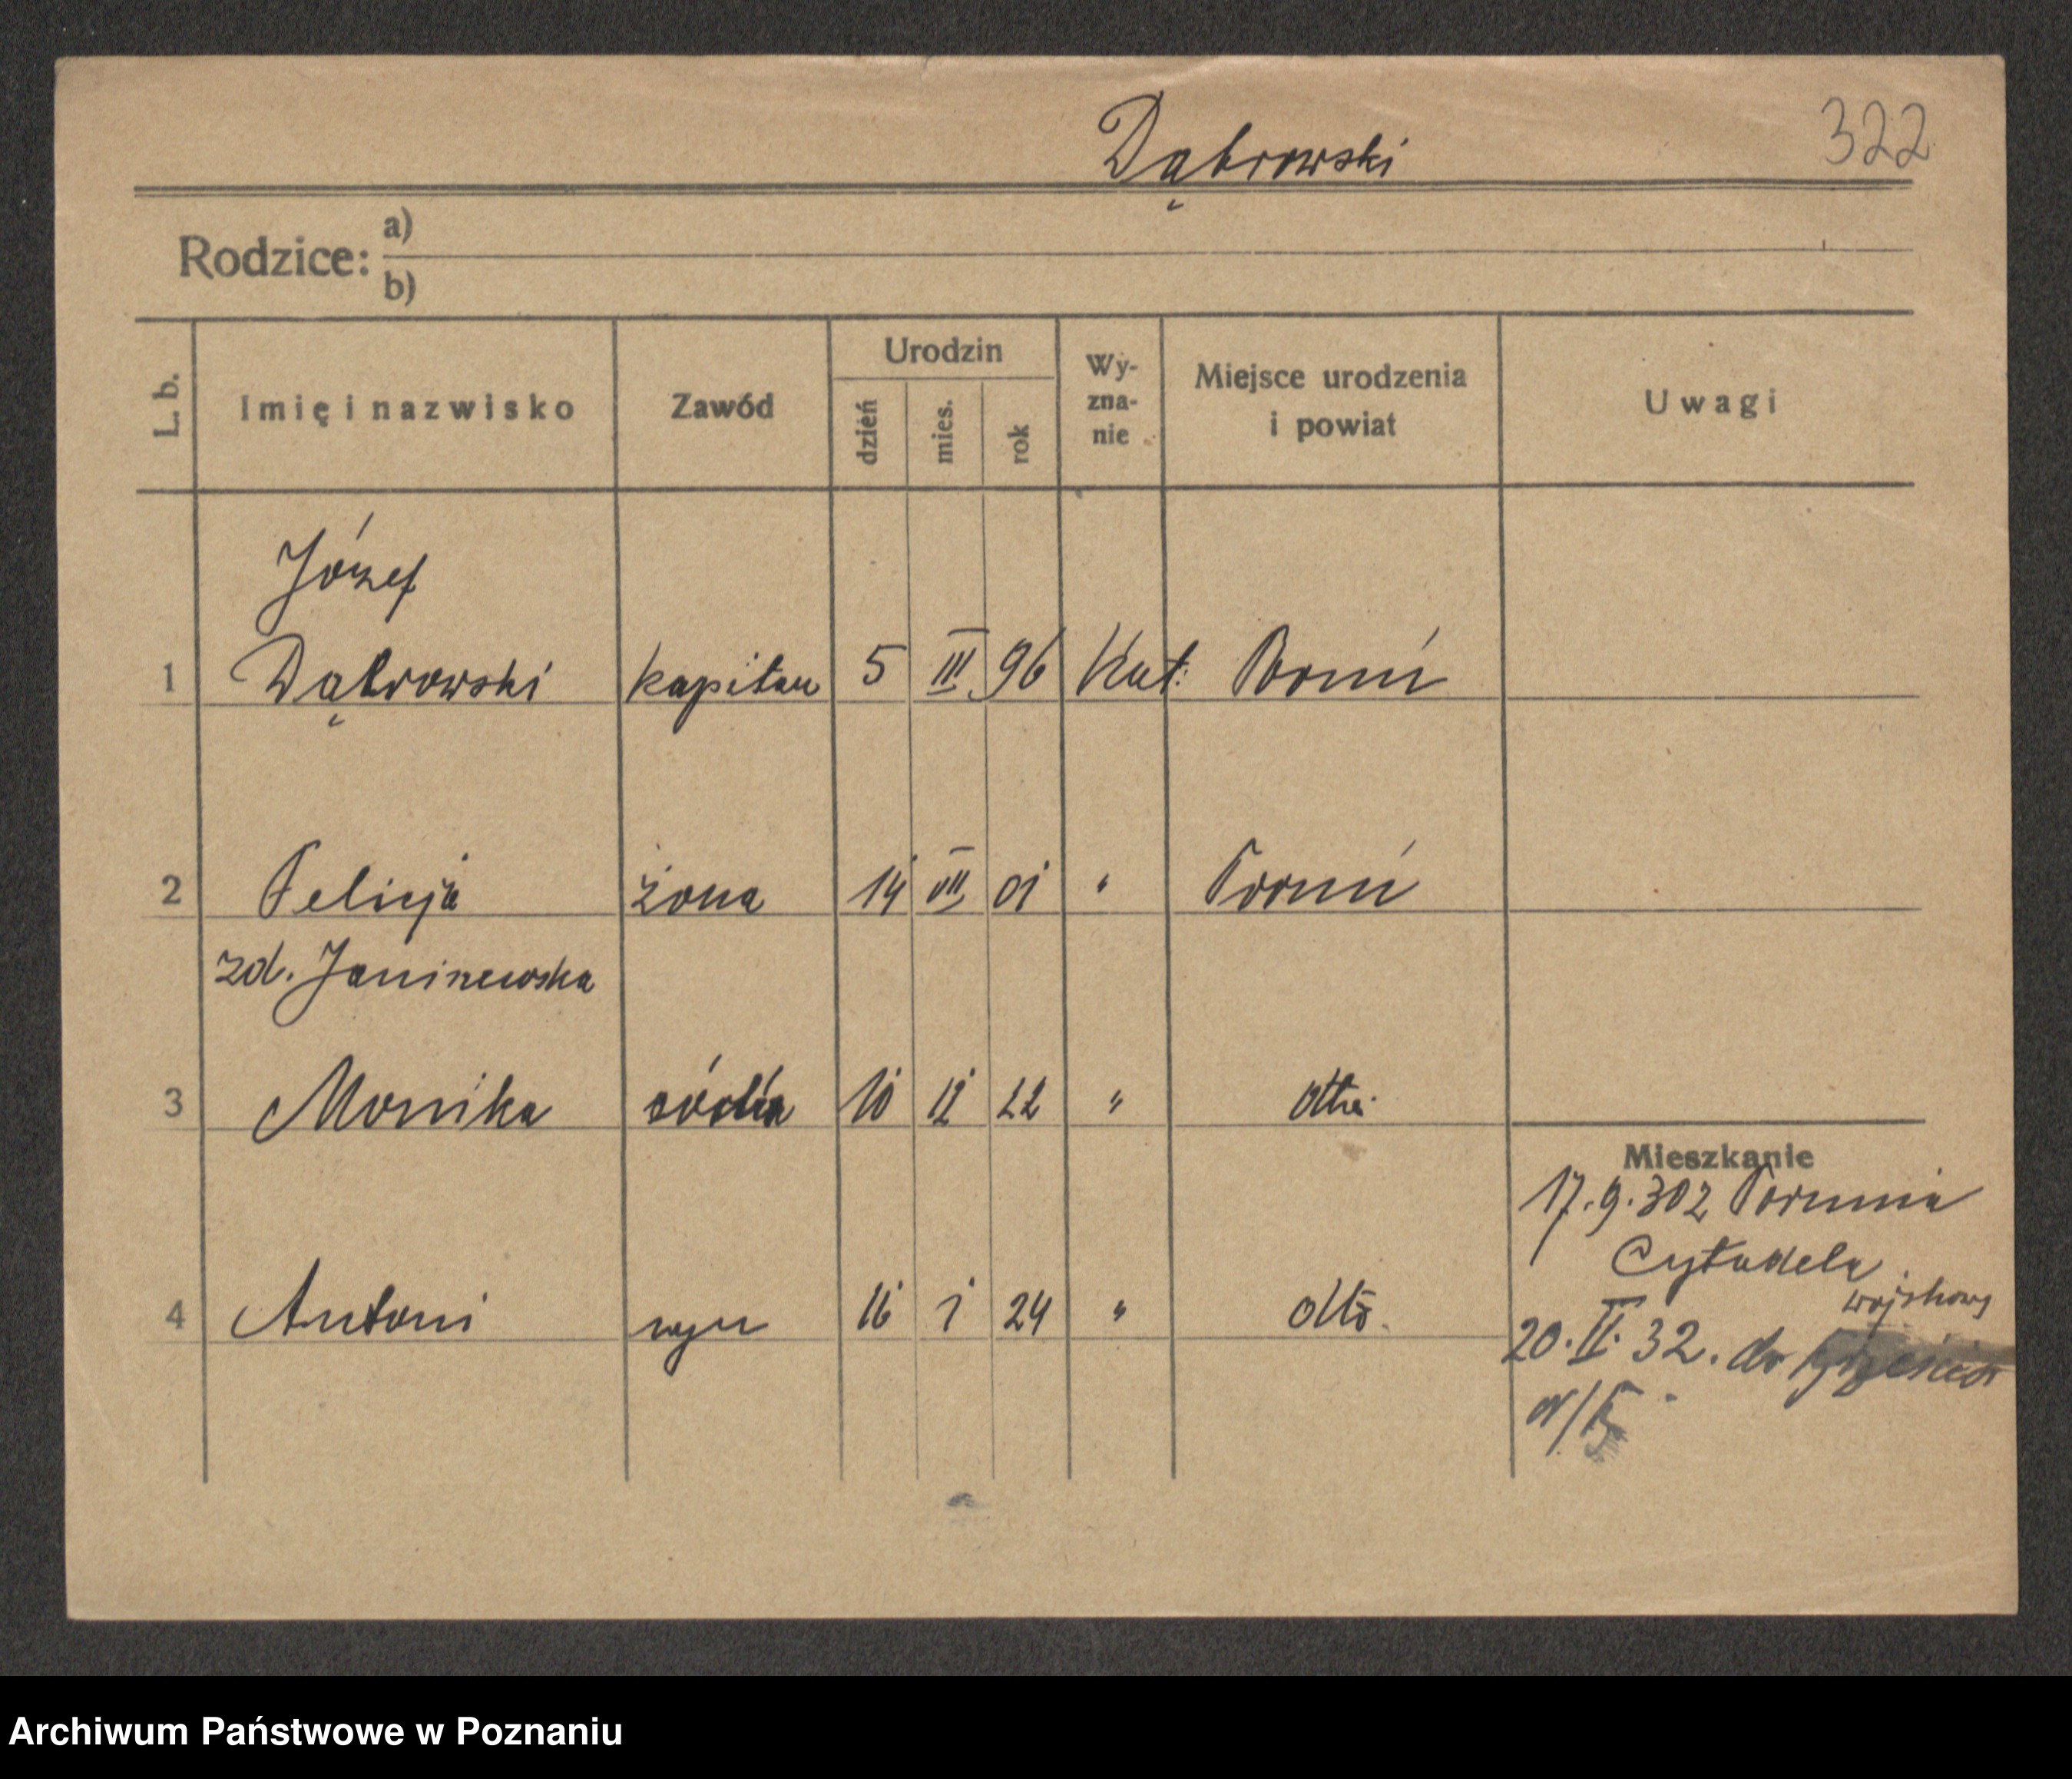 Dąbrowski
322
Rodzice:
a)
b)
L. b. Imię i nazwisko Zawód Urodzin dzień mies. rok Wy-zna-nie Miejsce urodzenia i powiat Uwagi
Józef
1 Dąbrowski kapitan 5 III 96 Kat.
2 Felicja żona 14 VII 01 " Toruń
zd.
3 Monika córka 10 22 "
4 Antoni syn 16 I 24 " dtto.
Mieszkanie
17.9.30 z Torunia
Cytadela
wojskowy
20. II. 32. do
Archiwum Państwowe w Poznaniu